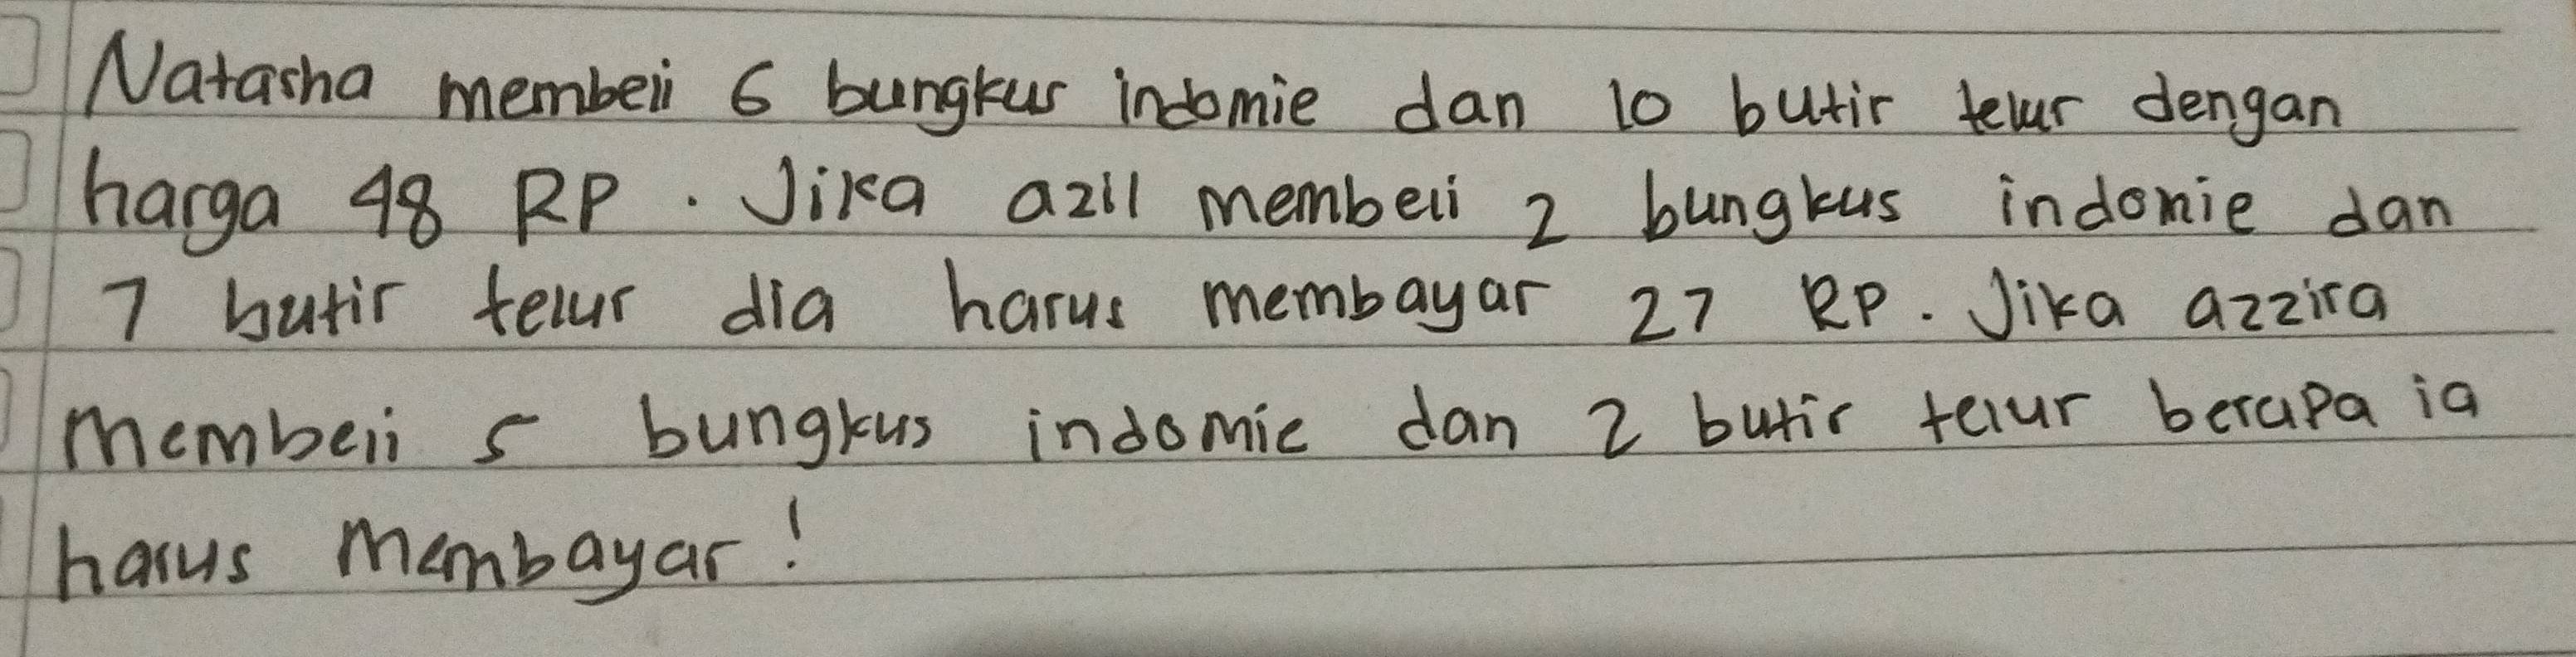 Natasha membeli 6 bungkus indomie dan 10 butir telur dengan
harga 48 RP. Jika azil membeli 2 bungkus indomie dan
7 butir telur dia harus membayar 27 RP. Jika azzira
membeli 5 bungkus indomie dan 2 butir telur berapa ia
harus membayar!